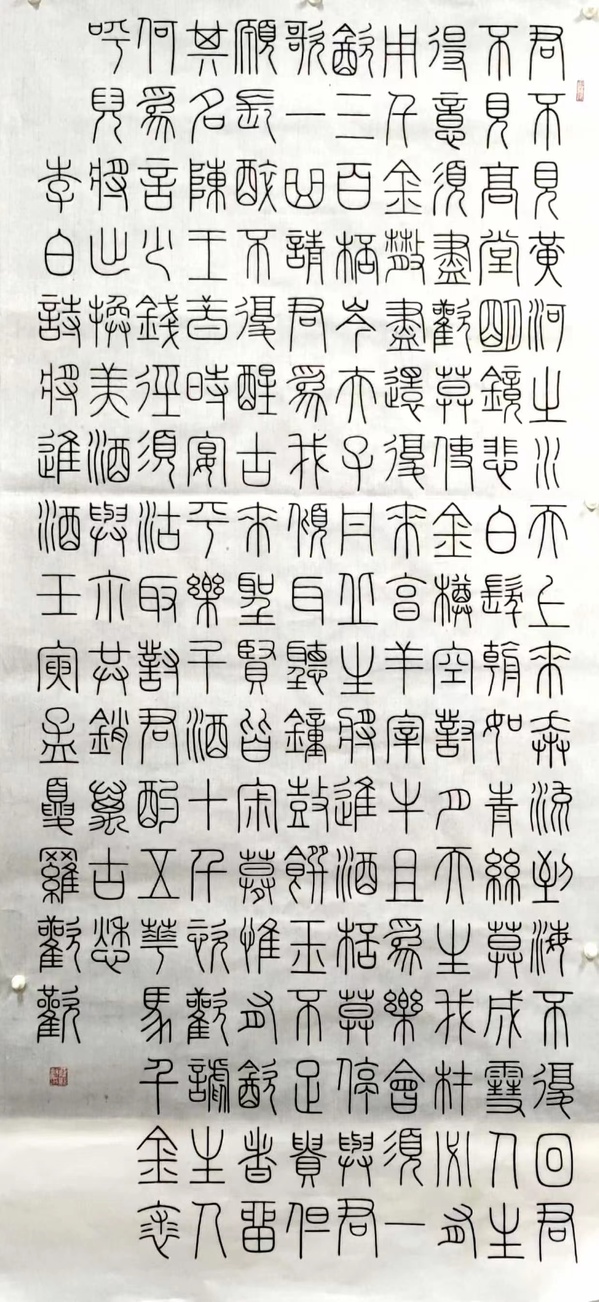 君不見黃河之水天上來奔流到海不復回君
不見高堂明鏡悲白髮朝如青絲莫成雪人生
得意須盡歡莫使金樽空對月天生我材必有
用千金散盡還復來烹羊宰牛且為樂會須一
飲三百杯岑夫子丹丘生將進酒杯莫停與君
歌一曲請君為我傾耳聽鐘鼓饌玉不足貴但
願長醉不復醒古來聖賢皆寂寞惟有飲者留
其名陳王昔時宴平樂斗酒十千恣歡謔主人
何為言少錢徑須沽取對君酌五華馬千金裘
呼兒將出換美酒與尒共銷萬古愁
李白詩將進酒壬寅孟夏羅歡歡